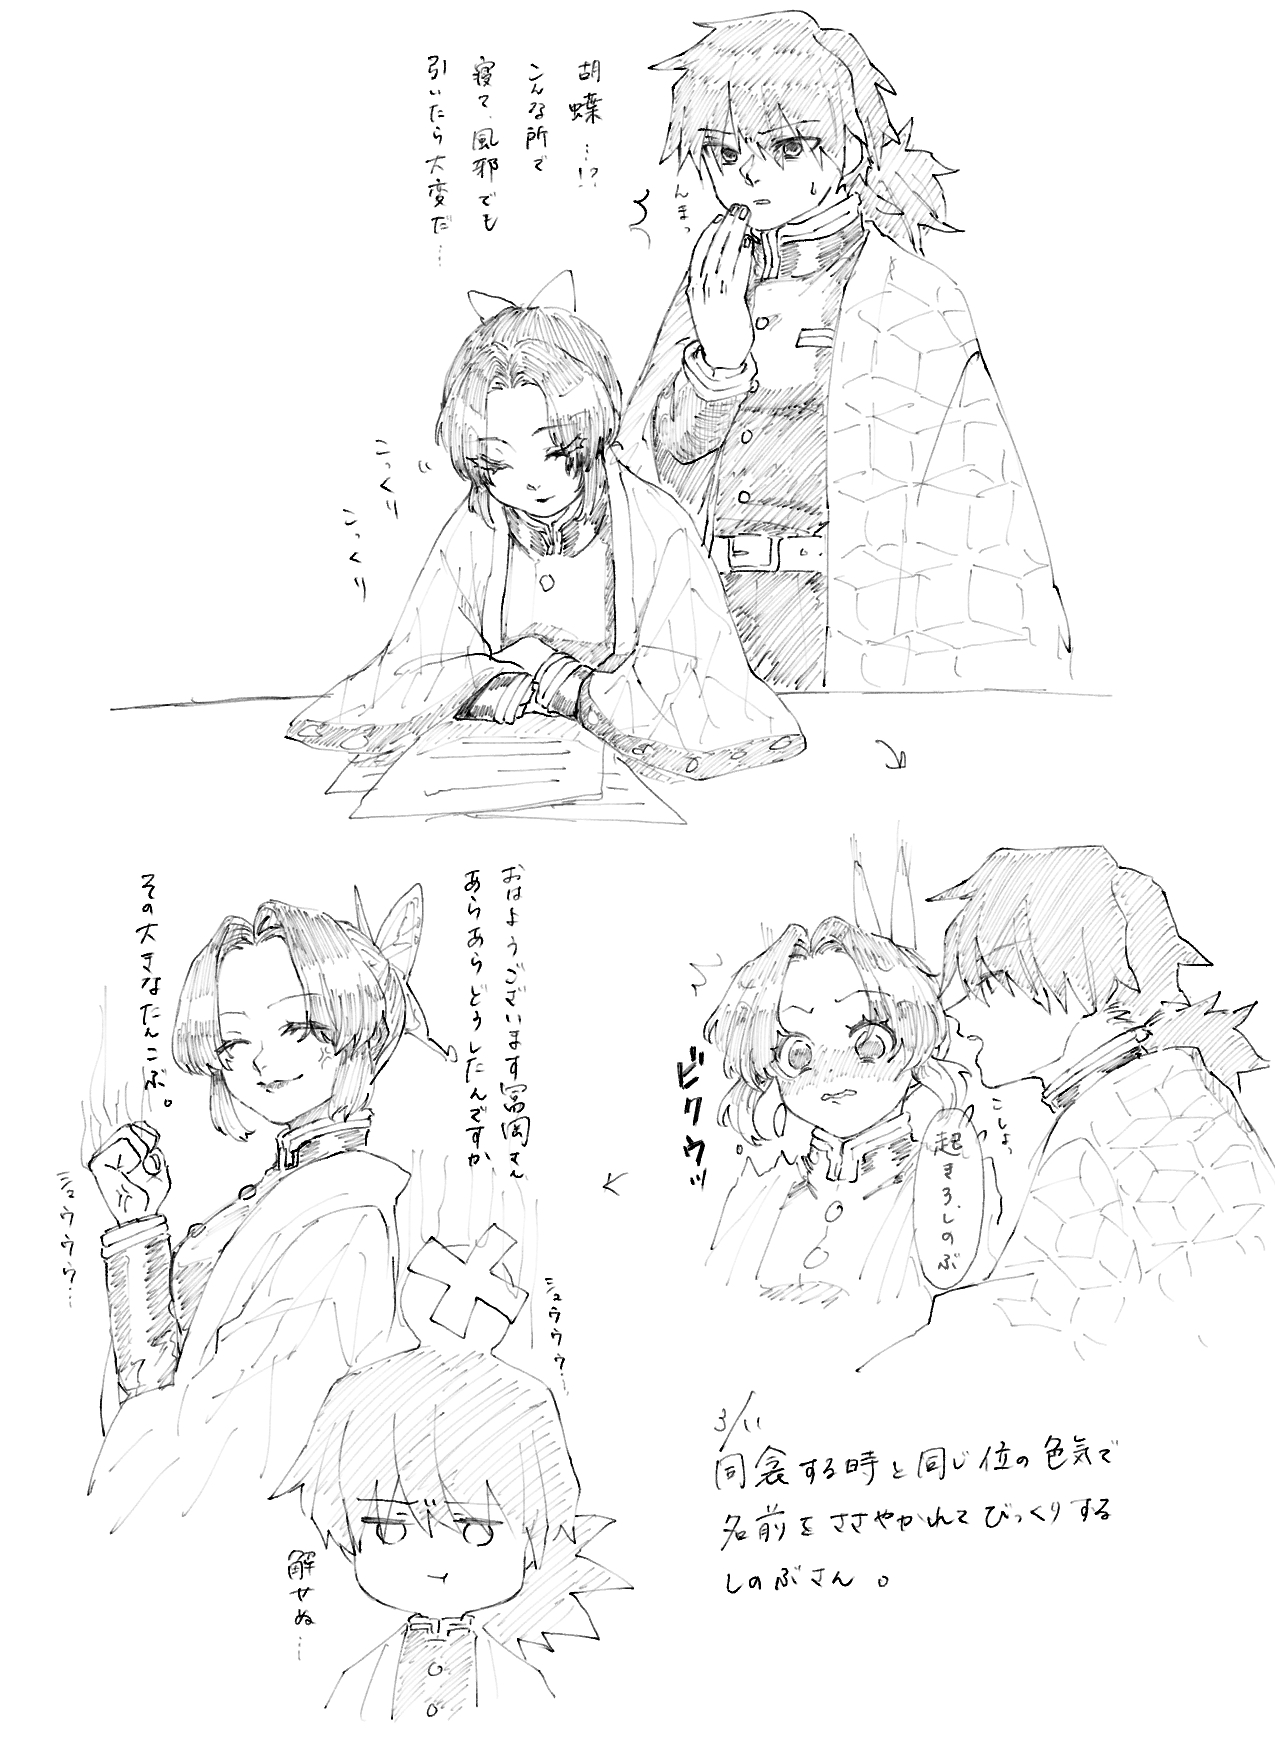 胡蝶…!?
こんな所で
寝て、風邪でも
引いたら大変だ…
んまっ
こっくり
こっくり
こしょっ
起きろ、しのぶ
ビクウッ
おはようございます冨岡さん
あらあらどうしたんですか
その大きなたんこぶ。
シュウウウ…
シュウウウ…
解せぬ…
3/11
同衾する時と同じ位の色気で
名前をささやかれてびっくりする
しのぶさん。